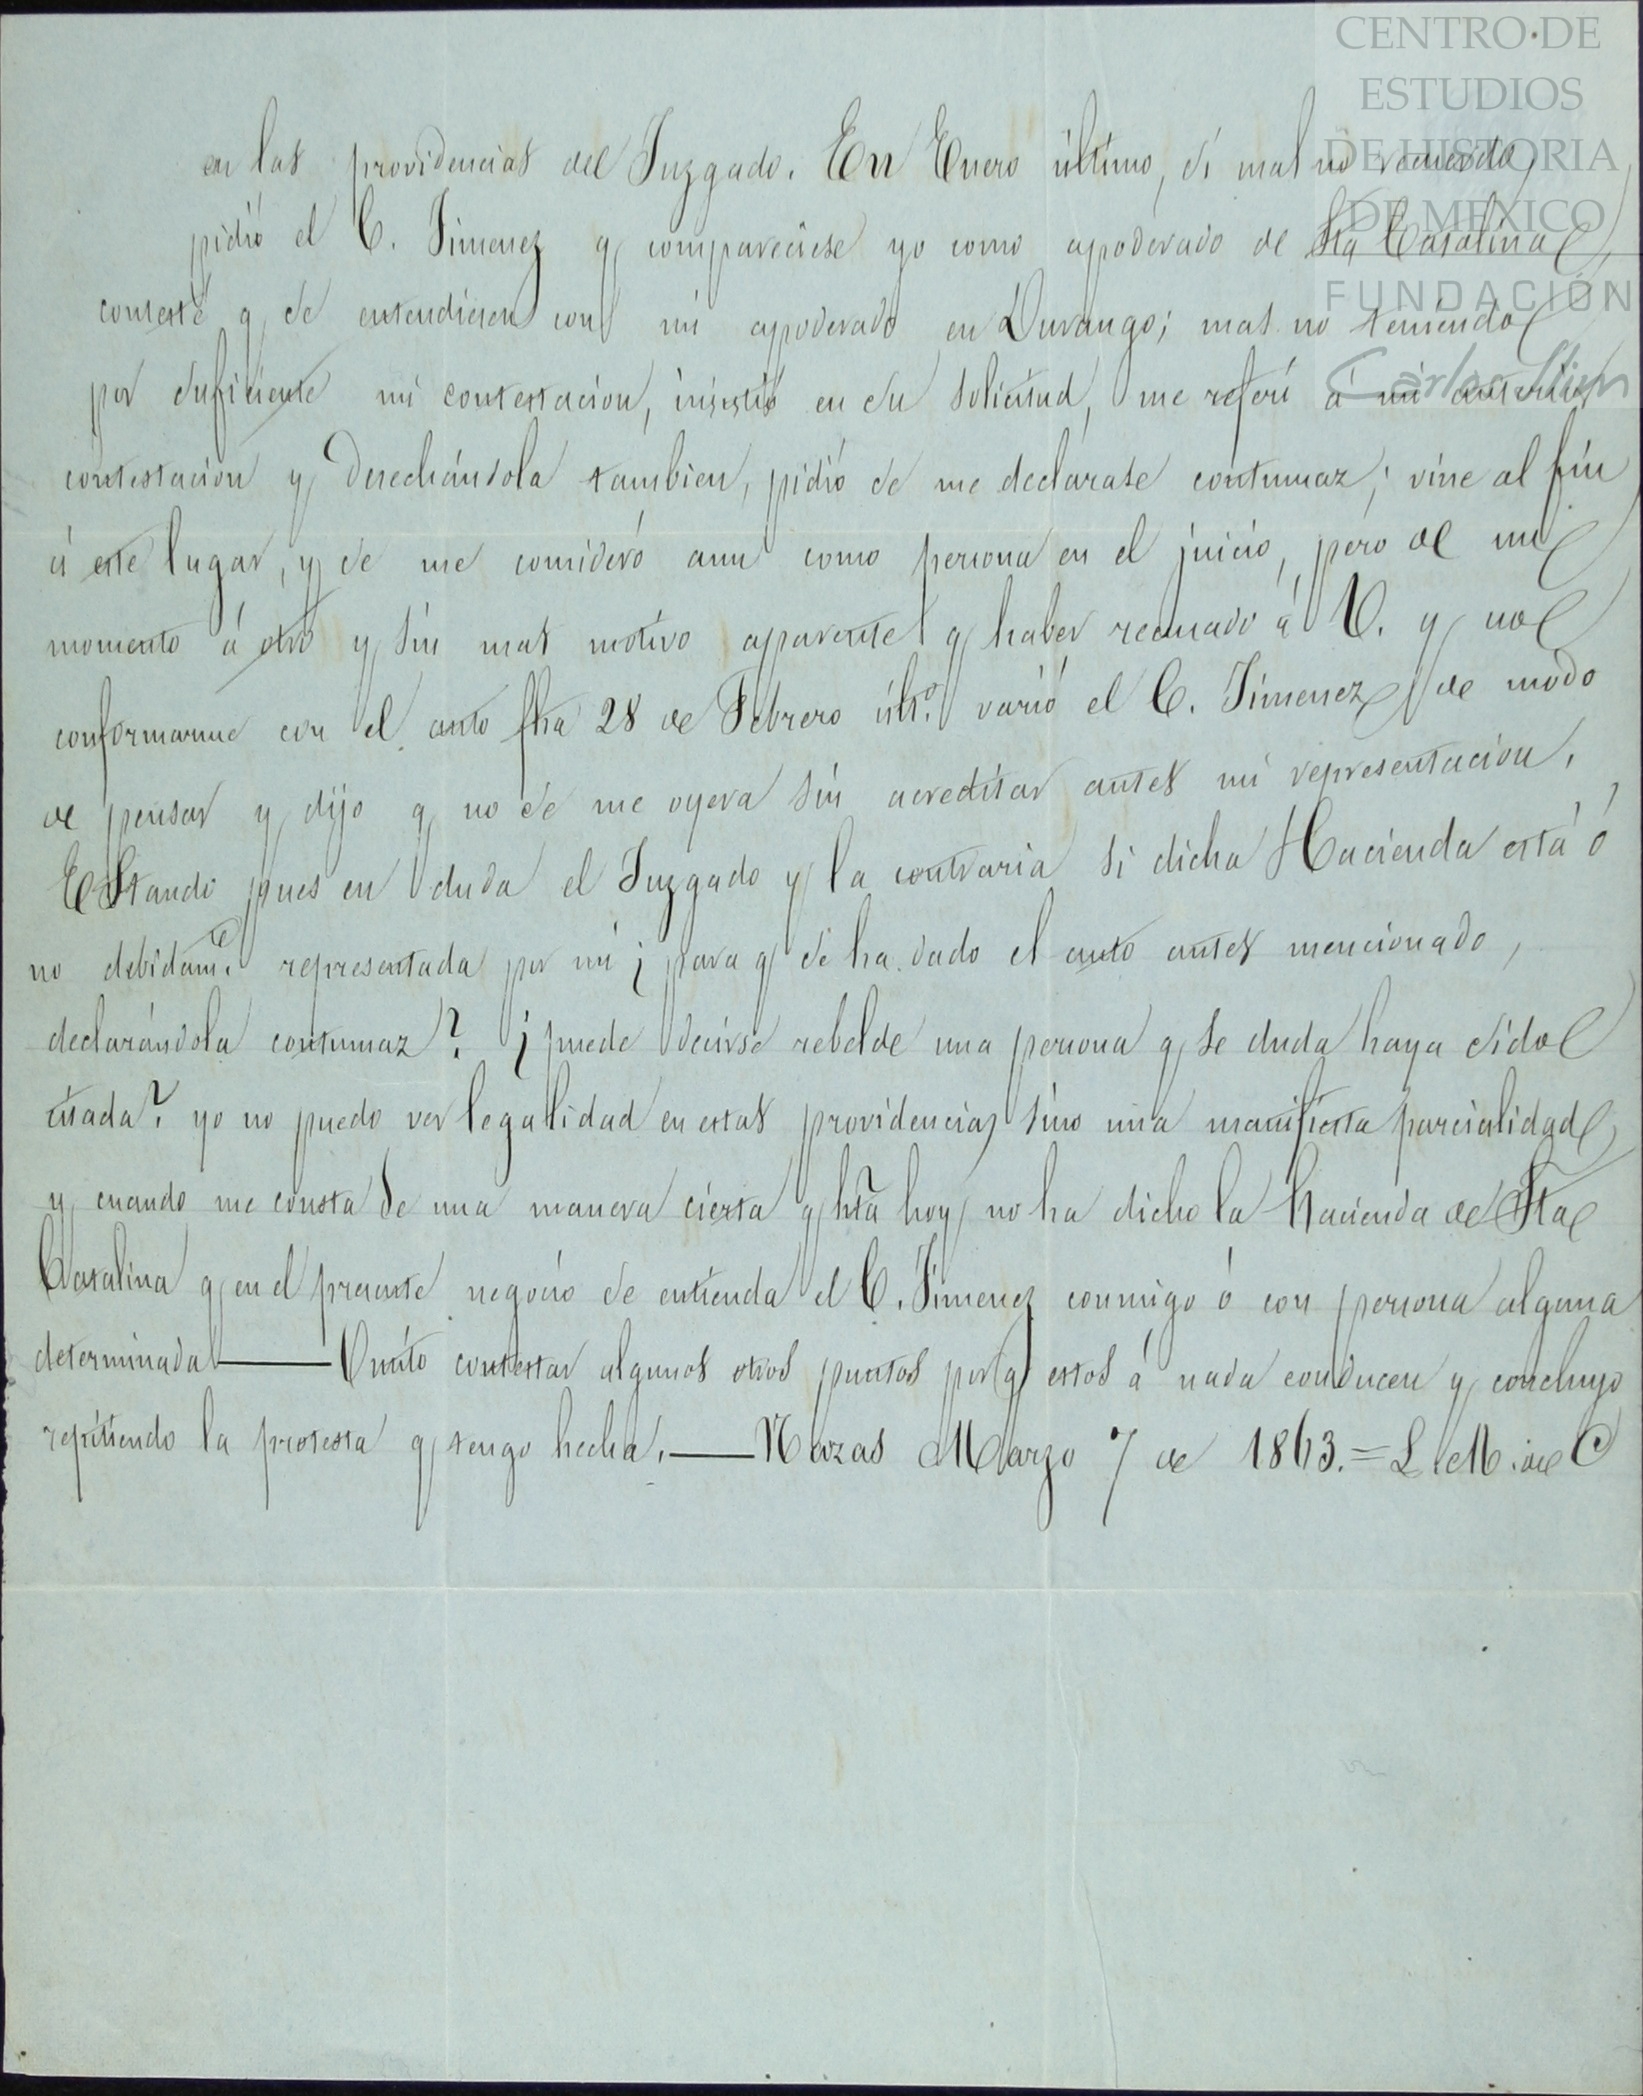 CENTRO·DE
ESTUDIOS
DE HISTORIA
DE MÉXICO
FUNDACIÓN
Carlos Slim
en las providencias del Juzgado. En Enero último, si mal no recuerdo,
pidió el C. Jimenez q. compareciese yo como apoderado de Sta Catalina,
contesté q. se entendiesen con mi apoderado en Durango; mas no teniendo
por suficiente mi contestacion, insistió en su solicitud, me referí á mi anterior
contestacion y desechándola tambien, pidió se me declarase contumaz; vine al fin
á este lugar, y se me consideró aun como persona en el juicio, pero de un
momento á otro y sin mas motivo aparente q. haber recusado á V. y no
conformarme con el auto fha 28 de Febrero últº. varió el C. Jimenez de modo
de pensar y dijo q. no se me oyera sin acreditar antes mi representacion.
Estando pues en duda el Juzgado y la contraria si dicha Hacienda está ó
no debidamᵗᵉ. representada por mi ¿para q. se ha dado el auto antes mencionado,
declarándola contumaz? ¿puede decirse rebelde una persona q. se duda haya sido
citada? yo no puedo ver legalidad en estas providencias sino una manifiesta parcialidad,
y cuando me consta de una manera cierta q. hta hoy no ha dicho la Hacienda de Sta
Catalina q. en el presente negocio se entienda el C. Jimenez conmigo ó con persona alguna
determinada——Omito contestar algunos otros puntos por q. estos á nada conducen y concluyo
repitiendo la protesta q. tengo hecha.——Nazas Marzo 7 de 1863.=L. M. del C